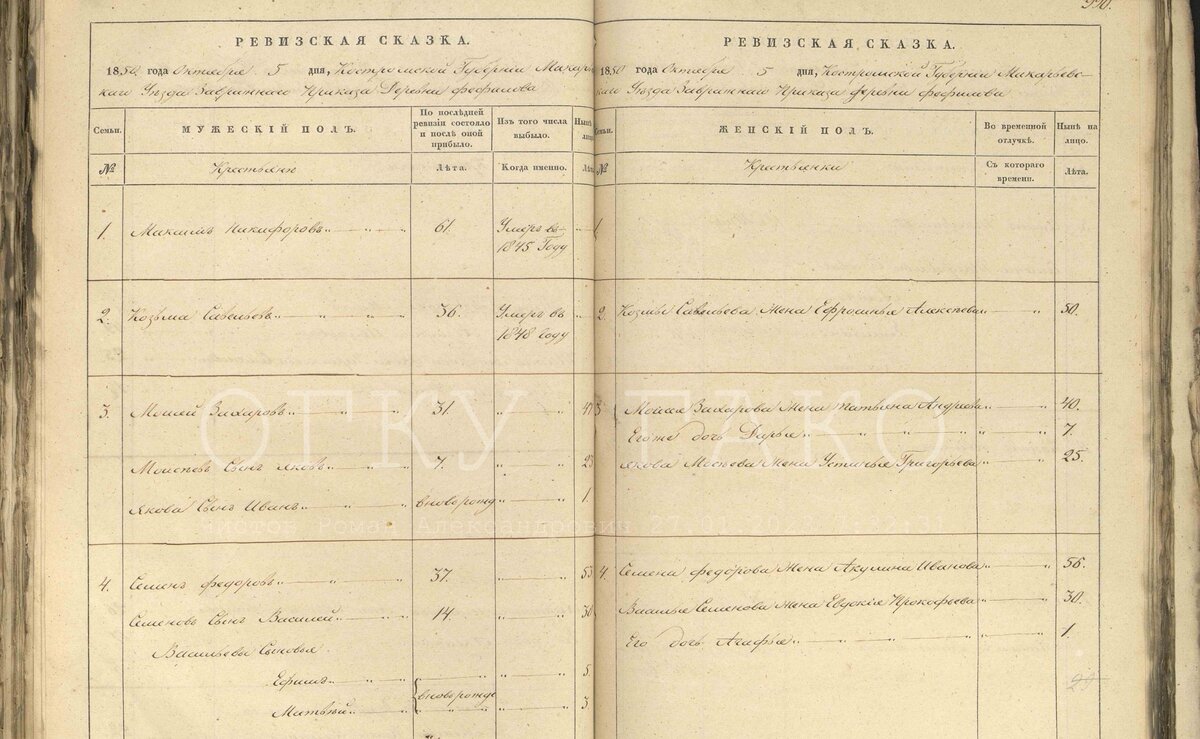 290.
РЕВИЗСКАЯ СКАЗКА.
1850 года Октября 5 дня, Костромской Губернiи Макарьев-
скаго Уѣзда Завражнаго Приказа Деревни Фефилова
Семьи. МУЖЕСКIЙ ПОЛЪ. По последней ревизiи состояло и послѣ оной прибыло. Изъ того числа выбыло. Нынѣ
№ Крестьяне Лѣта. Когда именно. Лѣта
1. Максимъ Никифоровъ 61. Умеръ въ
1845 Году
2. Козьма Савельевъ 36. Умеръ въ
1848 году
3. Моисей Захаровъ 31. 47
Моисѣевъ Сынъ Яковъ 7. 23
Якова Сынъ Иванъ вновьрожд 1.
4. Семенъ Федоровъ 37. 53
Семеновъ Сынъ Василей 14. 30
Васильевы Сыновья
Ефимъ 5.
вновьрожде
Матвѣй 3
РЕВИЗСКАЯ СКАЗКА.
1850 года Октября 5 дня, Костромской Губернiи Макарьев-
скаго Уѣзда Завражнаго Приказа Деревни Фефилова
Семьи. ЖЕНСКIЙ ПОЛЪ. Во временной отлучкѣ. Нынѣ на лицо.
№ Крестьянки Съ котораго времени. Лѣта.
1
2. Козмы Савельева Жена Ефросинья Алексѣева 50.
3 Моисея Захарова Жена Татьяна Андреева 40.
Его же дочь Дарья 7.
Якова Моисѣева Жена Устинья Григорьева 25.
4. Семена Федорова Жена Акулина Иванова 56.
Василья Семенова Жена Евдокiя Прокофьева 30.
Его дочь Агафья 1.
ОГКУ ГАКО
Чистов Роман Александрович 27.01.2023